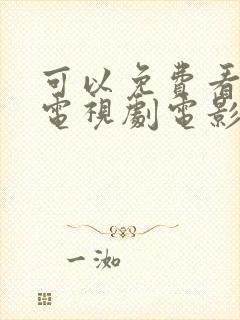 可以免費看
電視劇電影
一洳